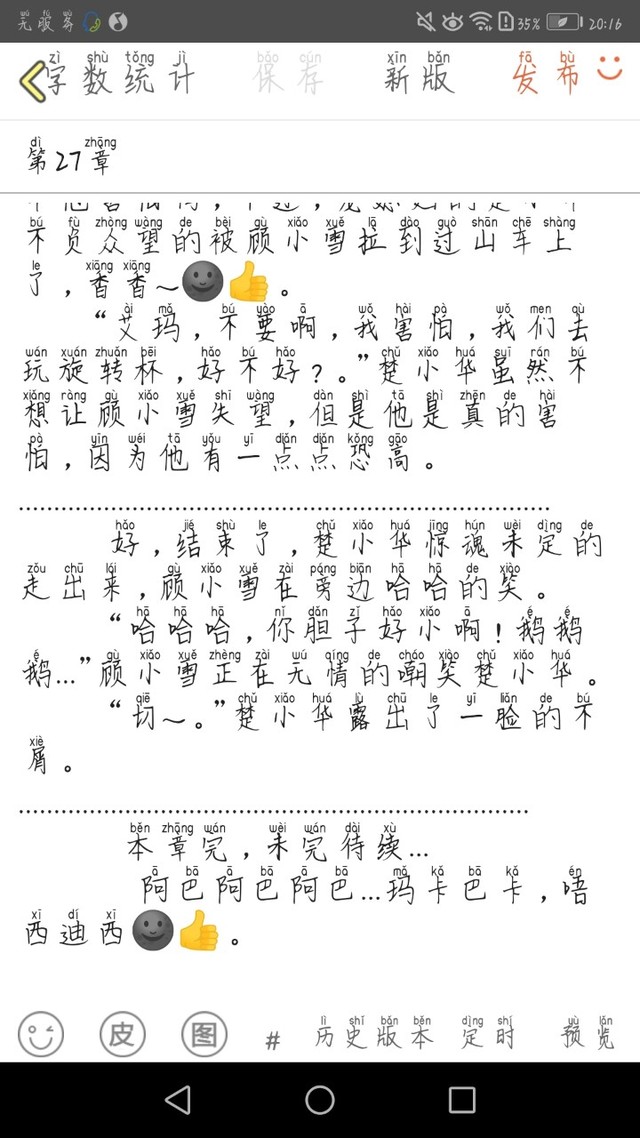 无服务 35% 20:16
字数统计 保存 新版 发布
第27章
不负众望的被顾小雪拉到过山车上
了，香香~🌚👍。
“艾玛，不要啊，我害怕，我们去
玩旋转杯，好不好？。”楚小华虽然不
想让顾小雪失望，但是他是真的害
怕，因为他有一点点恐高。
........................................................................
好，结束了，楚小华惊魂未定的
走出来，顾小雪在旁边哈哈的笑。
“哈哈哈，你胆子好小啊！鹅鹅
鹅...”顾小雪正在无情的嘲笑楚小华。
“切~。”楚小华露出了一脸的不
屑。
.....................................................................
本章完，未完待续...
阿巴阿巴阿巴...玛卡巴卡，唔
西迪西🌚👍。
皮 图 # 历史版本 定时 预览